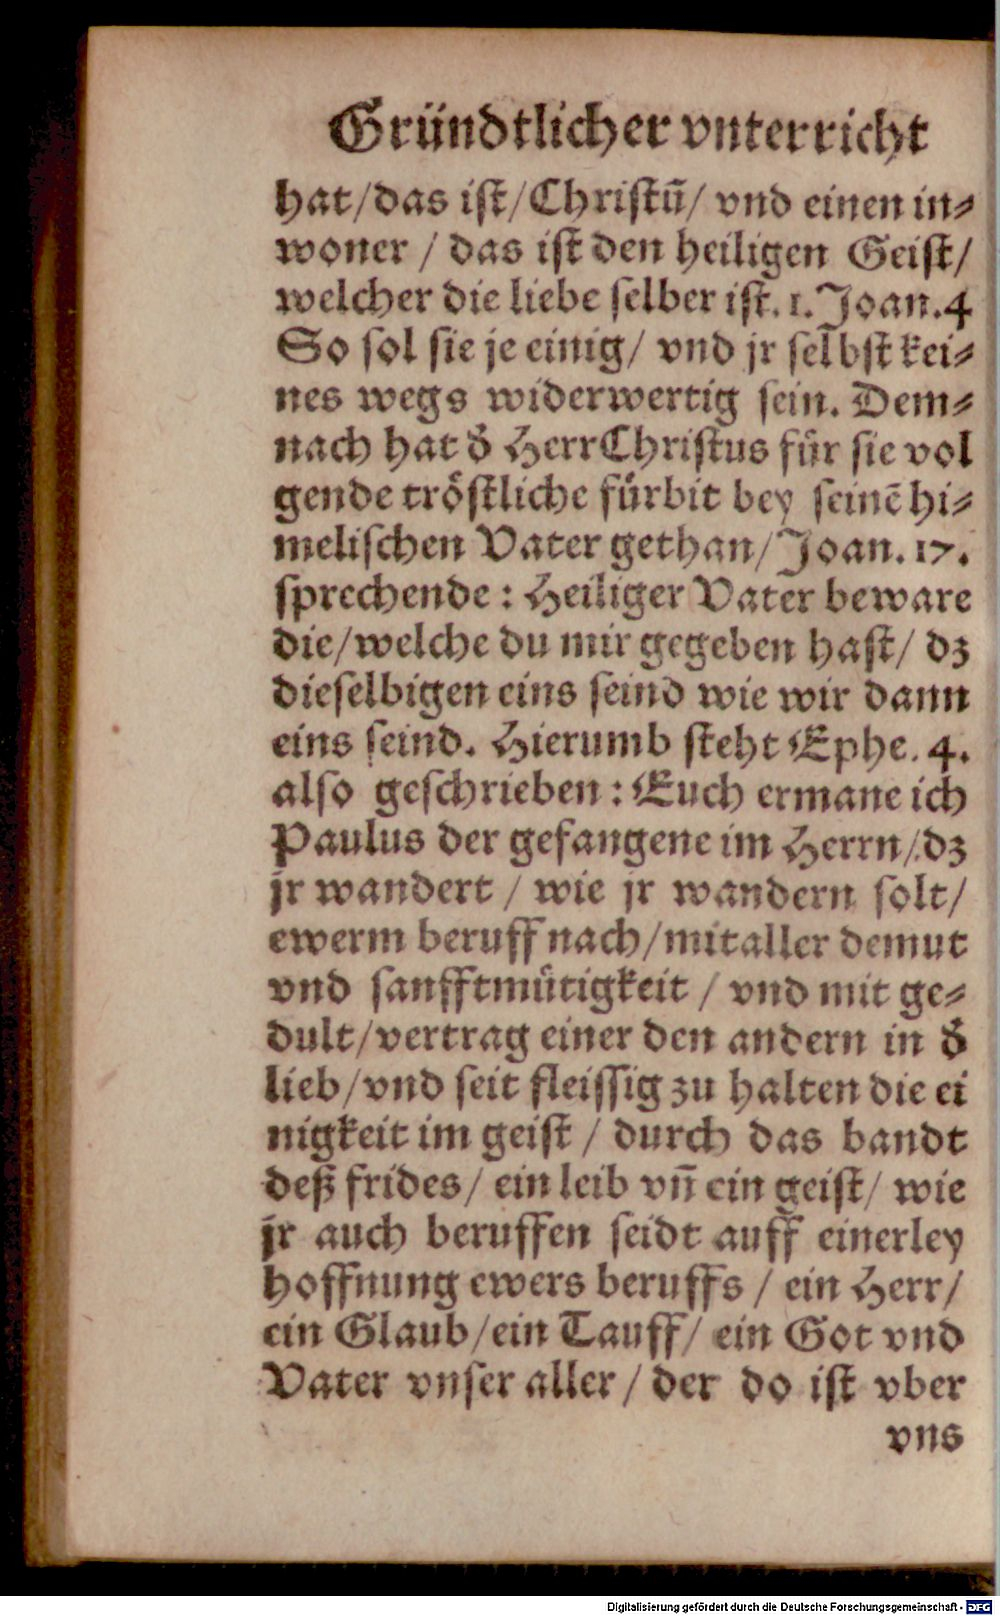 Gründtlicher vnterricht
hat/das ist/Christū/ vnd einen in⸗
woner / das ist den heiligen Geist/
welcher die liebe selber ist. 1. Joan. 4
So sol sie je einig/ vnd jr selbst kei⸗
nes wegs widerwertig sein. Dem⸗
nach hat d̕ Herr Christus fuͤr sie vol
gende troͤstliche fuͤrbit bey seinē hi⸗
melischen Vater gethan/Joan. 17.
sprechende: Heiliger Vater beware
die/welche du mir gegeben hast/ dz
dieselbigen eins seind wie wir dann
eins seind. Hierumb steht Ephe. 4.
also geschrieben: Euch ermane ich
Paulus der gefangene im Herrn/dz
jr wandert / wie jr wandern solt/
ewerm beruff nach/mit aller demut
vnd sanfftmuͤtigkeit / vnd mit ge⸗
dult/vertrag einer den andern in d̕
lieb/vnd seit fleissig zu halten die ei
nigkeit im geist / durch das bandt
deß frides/ ein leib vn̄ ein geist/ wie
jr auch beruffen seidt auff einerley
hoffnung ewers beruffs / ein Herr/
ein Glaub/ein Tauff/ ein Got vnd
Vater vnser aller/ der do ist vber
vns
Digitalisierung gefördert durch die Deutsche Forschungsgemeinschaft - DFG